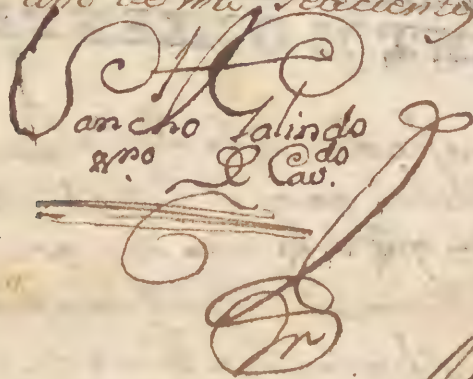 año de mil setecientos
Sancho Galindo
ssno de Cavdo